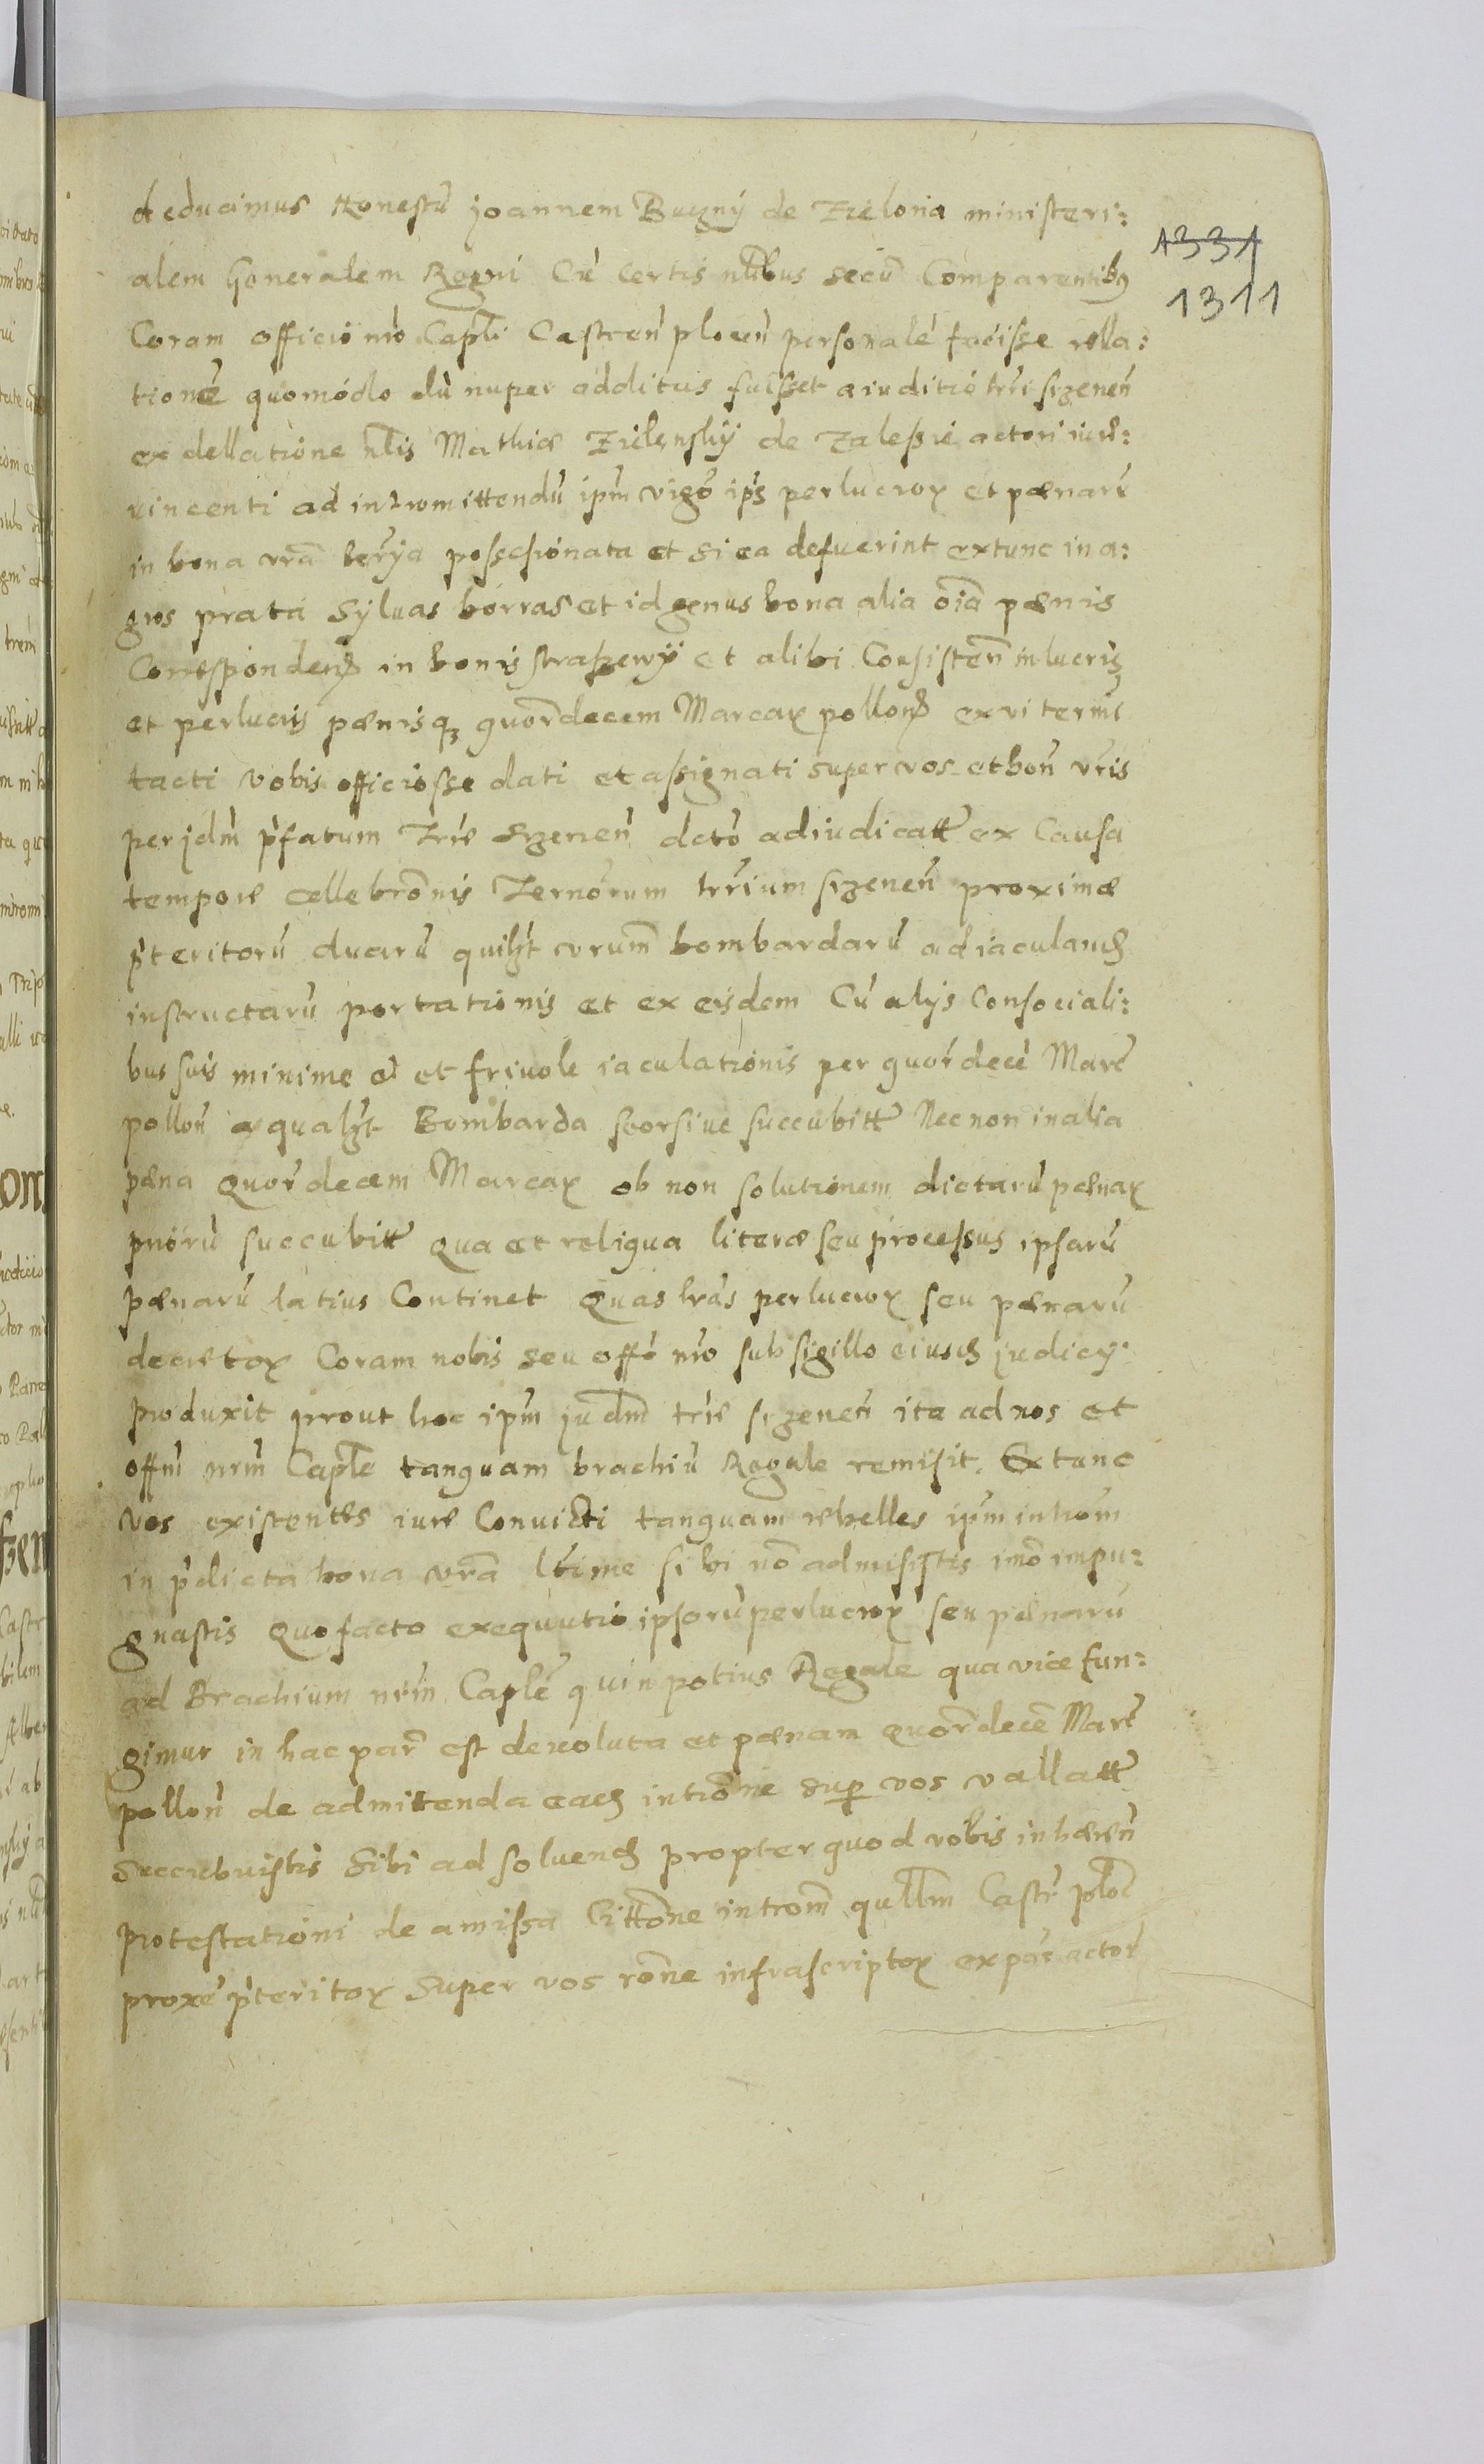 deducimus Honestũ joannem Buczny de Zielona ministeri:
alem Generalem Regni Cũ Certis nlibus secũ Comparentibus
Coram officio nr̃o Capli Castren̄ plocen̄ personalē fecisse rella:
tionē quomodo dũ nuper additus fuisset a iuditio trr̃i srzenen̄
ex dellatione nlis Mathiæ Zielensky de Zalessie actori iure:
vincenti ad intromittendũ ipm̄ vigo ips perlucrox et pænarũ
in bona vrã possessionata et si ea defuerint extunc in a:
gros prata sÿluas borras et id genus bona alia oĩa pænis
Corresponden̄ in bonis straszewÿ et alibi Consisten̄ in lucris
et perlucris pænisqz quordecem Marcax pollon̄ ex vi termi
tacti vobis officiosse dati et assignati super vos et bon̄ vris
per jdm̄ pfatum Trr̃e srzenen̄ dcto adiudicatt ex Causa
tempore cellebrõnis Ternorum trr̃ium srzenen̄ proximæ
pteritorũ duarũ quilzt vrum̄ bombardarũ ad iaculand
instructarũ portationis et ex eisdem Cũ alÿs Consociali:
bus suis minime et friuole iaculationis per quordecē Marc
pollon̄ a qualzt Bombarda seorsiue succubitt Nec non in alia
pæna quordecem Marcax ob non solutionem dictarũ pænax
pnorũ succubitt qua et reliqua literæ seu processus ipsarũ
pænarũ latius Continet Quas lrãs perlucrox seu pænarũ
decretox Coram nobis seu offo nro sub sigillo eiusd judicÿ
produxit prout hoc ipm̄ judm̄ trr̃e srzenen̄ ita ad nos et
offm̄ nrm̄ Caple tanquam brachiũ Regale remisit. Extunc
vos existentes iure Convicti tanquam rebelles ipm̄ introm̄
in pdicta bona vrã ltime sibi nõ admisistis imo impu:
gnastis Quo facto exequutio ipsorũ perlucrox seu pænarũ
ad Brachium nrm̄ Caple quin potius Regale qua vice fun:
gimur in hac par̃ est deuoluta et pænam quordecē Marc
pollon̄ de admittenda ead intrõne sup vos vallatt
succubuistis sibi ad soluend propter quod vobis inhæren̄
protestationi de amissa Cittõne introm̄ qullm̄ Castr̃ ploc
proxe pteritox super vos rõne infrascriptox ex par̃ actor
1331
1311